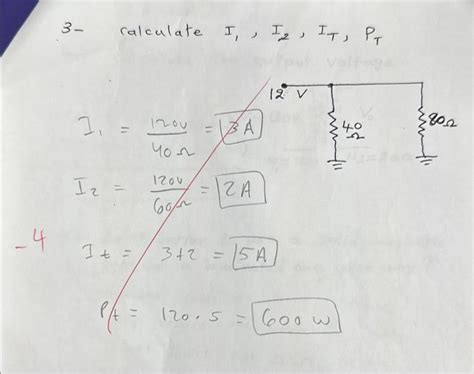 3- calculate I₁, I₂, I_T, P_T
12 V
40 Ω
80Ω
I₁ = 120V / 40Ω = 3A
I₂ = 120V / 60Ω = 2A
-4
I t = 3+2 = 5A
P t = 120 . 5 = 600 W